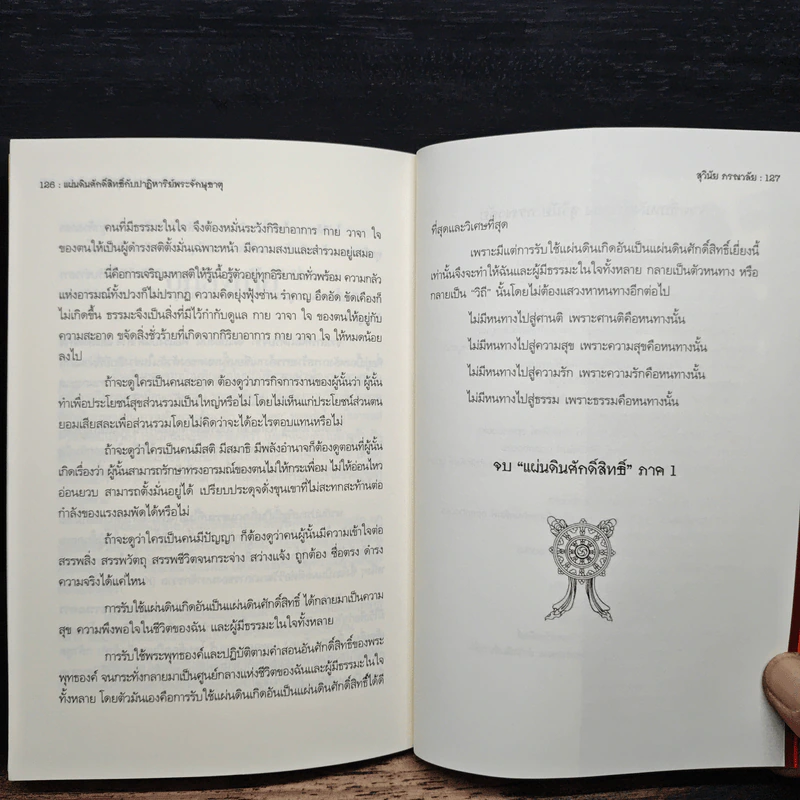 126 : แผ่นดินศักดิ์สิทธิ์กับปาฏิหาริย์พระจักษุธาตุ
คนที่มีธรรมะในใจ จึงต้องหมั่นระวังกิริยาอาการ กาย วาจา ใจ
ของตนให้เป็นผู้ดำรงสติตั้งมั่นเฉพาะหน้า มีความสงบและสำรวมอยู่เสมอ
นี่คือการเจริญมหาสติให้รู้เนื้อรู้ตัวอยู่ทุกอิริยาบถทั่วพร้อม ความกลัว
แห่งอารมณ์ทั้งปวงก็ไม่ปรากฏ ความคิดยุ่งฟุ้งซ่าน รำคาญ อึดอัด ขัดเคืองก็
ไม่เกิดขึ้น ธรรมะจึงเป็นสิ่งที่มีไว้กำกับดูแล กาย วาจา ใจ ของตนให้อยู่กับ
ความสะอาด ขจัดสิ่งชั่วร้ายที่เกิดจากกิริยาอาการ กาย วาจา ใจ ให้หมดน้อย
ลงไป
ถ้าจะดูใครเป็นคนสะอาด ต้องดูว่าภารกิจการงานของผู้นั้นว่า ผู้นั้น
ทำเพื่อประโยชน์สุขส่วนรวมเป็นใหญ่หรือไม่ โดยไม่เห็นแก่ประโยชน์ส่วนตน
ยอมเสียสละเพื่อส่วนรวมโดยไม่คิดว่าจะได้อะไรตอบแทนหรือไม่
ถ้าจะดูว่าใครเป็นคนมีสติ มีสมาธิ มีพลังอำนาจก็ต้องดูตอนที่ผู้นั้น
เกิดเรื่องว่า ผู้นั้นสามารถรักษาทรงอารมณ์ของตนไม่ให้กระเพื่อม ไม่ให้อ่อนไหว
อ่อนยวบ สามารถตั้งมั่นอยู่ได้ เปรียบประดุจดั่งขุนเขาที่ไม่สะทกสะท้านต่อ
กำลังของแรงลมพัดได้หรือไม่
ถ้าจะดูว่าใครเป็นคนมีปัญญา ก็ต้องดูว่าคนผู้นั้นมีความเข้าใจต่อ
สรรพสิ่ง สรรพวัตถุ สรรพชีวิตจนกระจ่าง สว่างแจ้ง ถูกต้อง ซื่อตรง ดำรง
ความจริงได้แค่ไหน
การรับใช้แผ่นดินเกิดอันเป็นแผ่นดินศักดิ์สิทธิ์ ได้กลายมาเป็นความ
สุข ความพึงพอใจในชีวิตของฉัน และผู้มีธรรมะในใจทั้งหลาย
การรับใช้พระพุทธองค์และปฏิบัติตามคำสอนอันศักดิ์สิทธิ์ของพระ
พุทธองค์ จนกระทั่งกลายมาเป็นศูนย์กลางแห่งชีวิตของฉันและผู้มีธรรมะในใจ
ทั้งหลาย โดยตัวมันเองคือการรับใช้แผ่นดินเกิดอันเป็นแผ่นดินศักดิ์สิทธิ์ได้ดี
สุวินัย ภรณวลัย : 127
ที่สุดและวิเศษที่สุด
เพราะมีแต่การรับใช้แผ่นดินเกิดอันเป็นแผ่นดินศักดิ์สิทธิ์เยี่ยงนี้
เท่านั้นจึงจะทำให้ฉันและผู้มีธรรมะในใจทั้งหลาย กลายเป็นตัวหนทาง หรือ
กลายเป็น "วิถี" นั้นโดยไม่ต้องแสวงหาหนทางอีกต่อไป
ไม่มีหนทางไปสู่ศานติ เพราะศานติคือหนทางนั้น
ไม่มีหนทางไปสู่ความสุข เพราะความสุขคือหนทางนั้น
ไม่มีหนทางไปสู่ความรัก เพราะความรักคือหนทางนั้น
ไม่มีหนทางไปสู่ธรรม เพราะธรรมคือหนทางนั้น
จบ "แผ่นดินศักดิ์สิทธิ์" ภาค 1